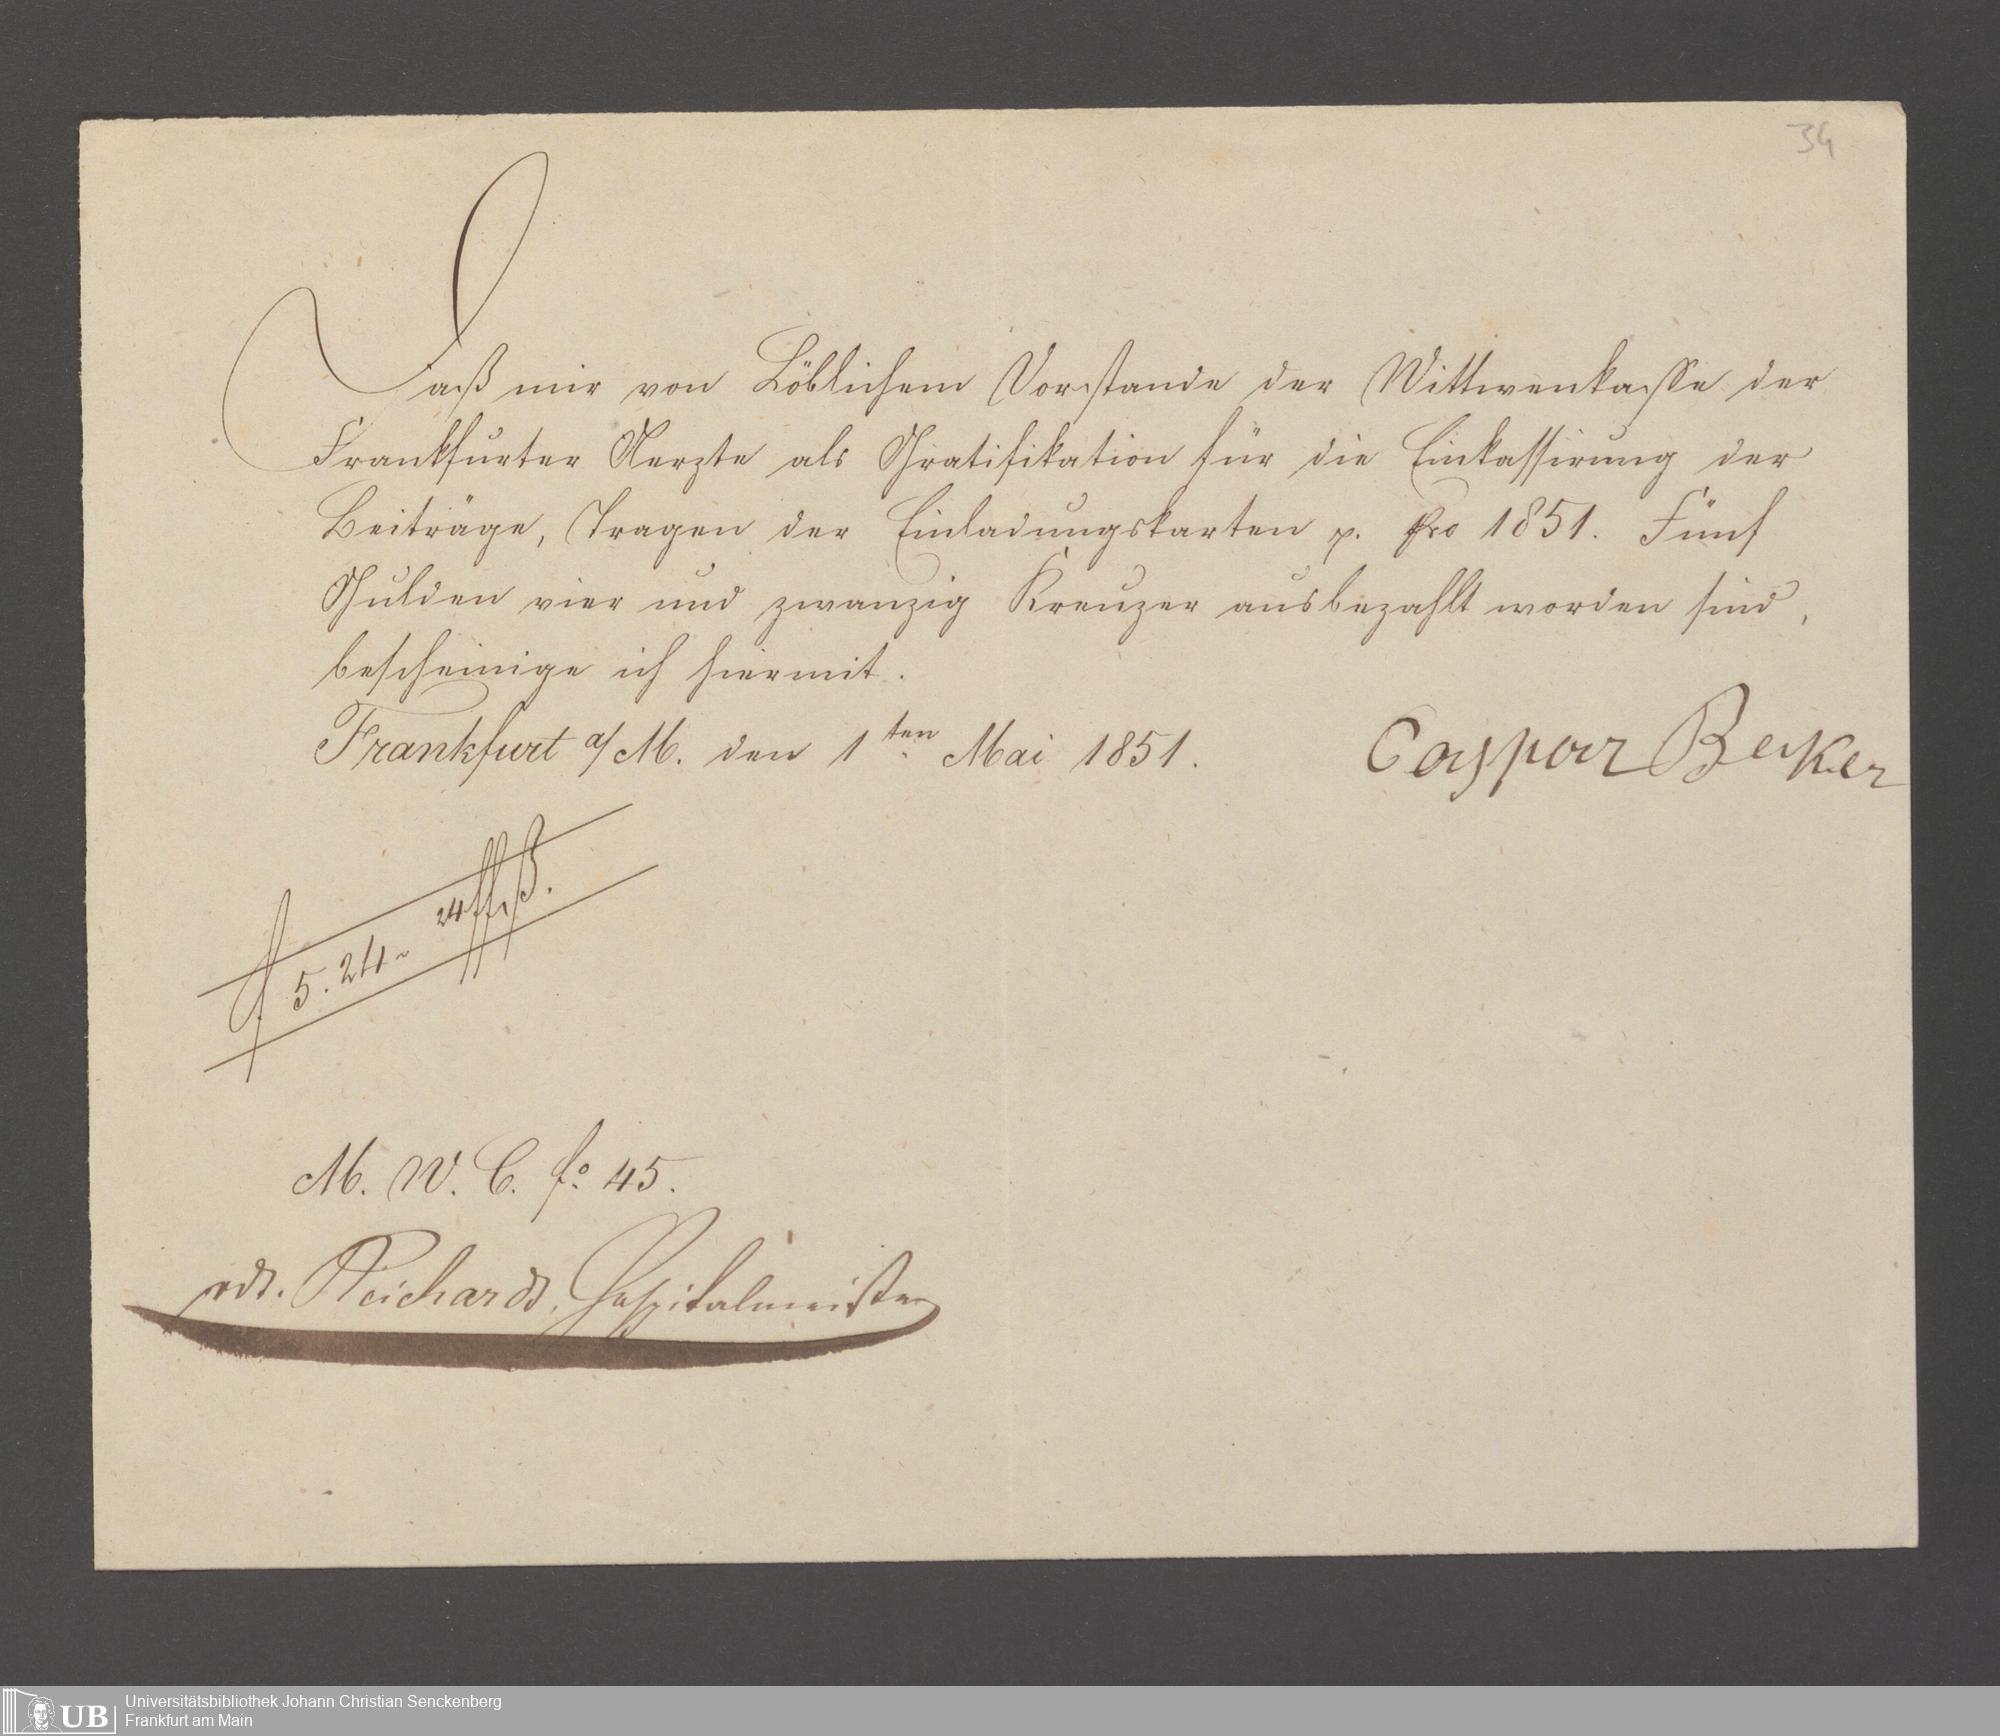 34
Daß mir von Löblichem Vorstande der Wittwenkasse der
Frankfurter Aerzte als Gratifikation für die Einkassirung der
Beiträge, Tragen der Einladungskarten p. pro 1851. Fünf
Gulden vier und zwanzig Kreuzer ausbezahlt worden sind,
bescheinige ich hiermit.
Frankfurt a/M. den 1ten Mai 1851.
Caspar Becker
f 5. 24
M. W. C. fo. 45.
vdt. Reichard, Hospitalmeister
UB
Universitätsbibliothek Johann Christian Senckenberg
Frankfurt am Main